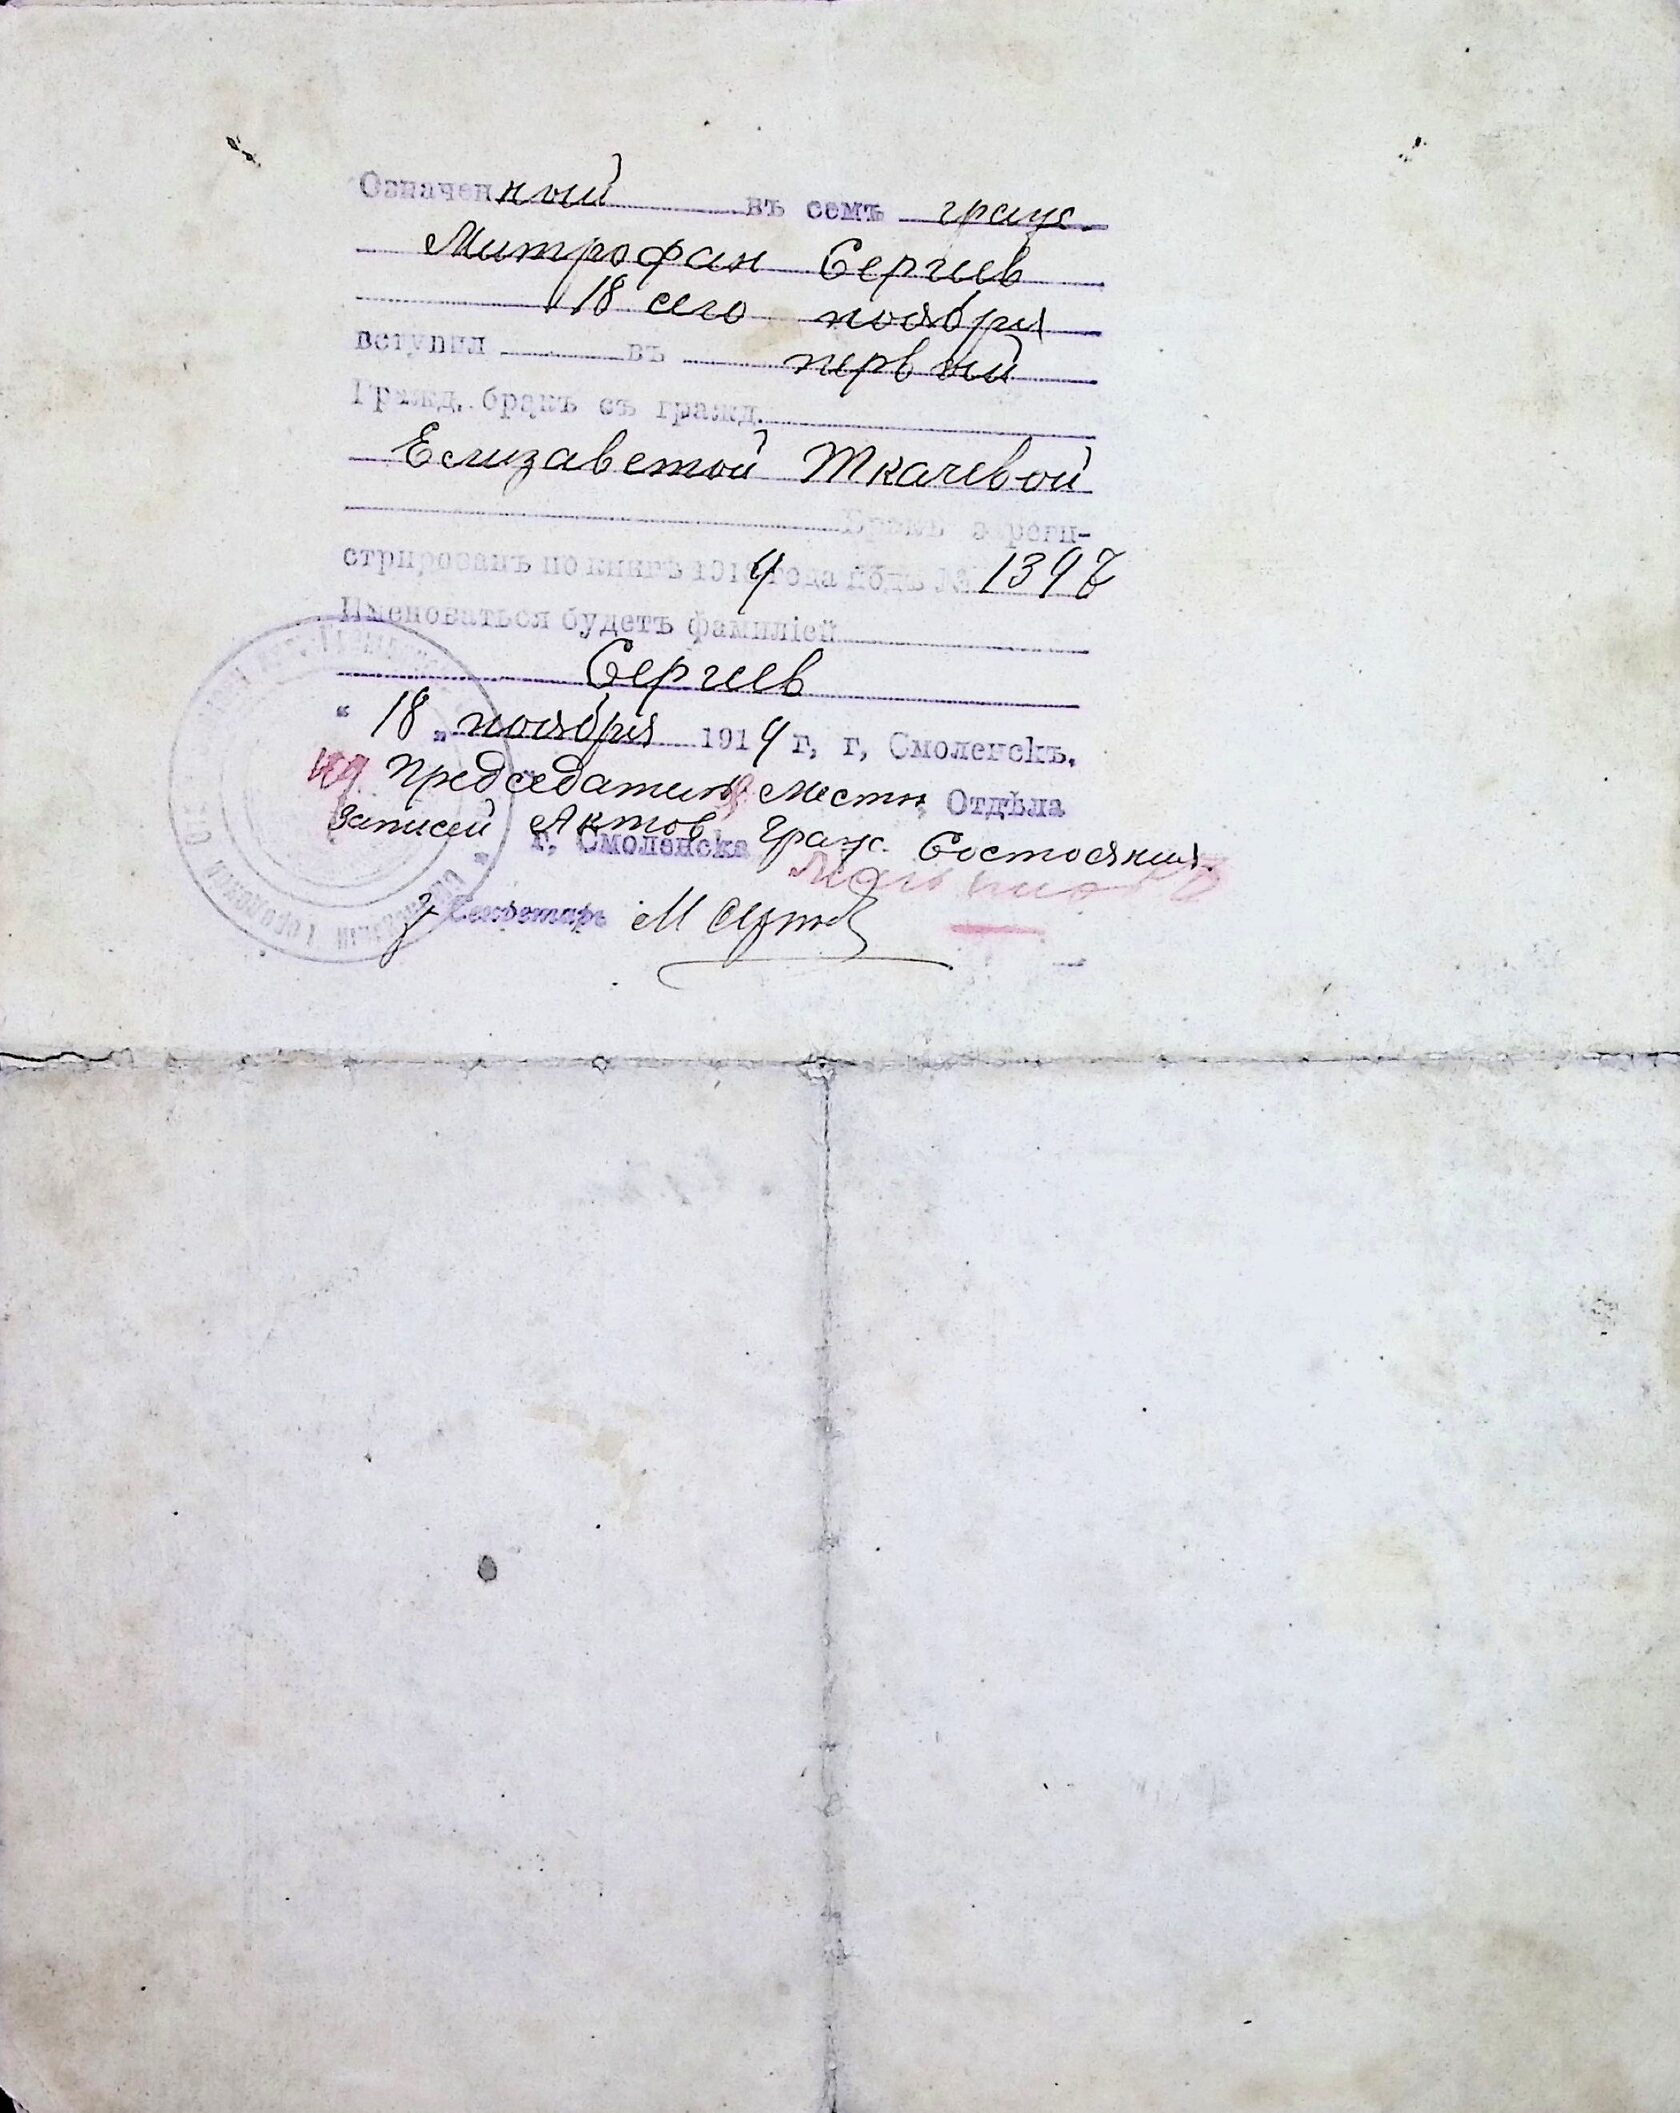 Означенный въ семъ граж.
Митрофан Сергиев
18 сего ноября
вступил въ первый
Гражд. бракъ съ гражд.
Елизаветой Ткачевой
Бракъ зареги-
стрированъ по книгѣ 1919 года подъ № 1397
Именоваться будетъ фамиліей
Сергиев
"18" ноября 1919 г, г, Смоленскъ.
Председатель Местн. Отдѣла
Записей Актов Граж. Состояния
г, Смоленска
Секретарь